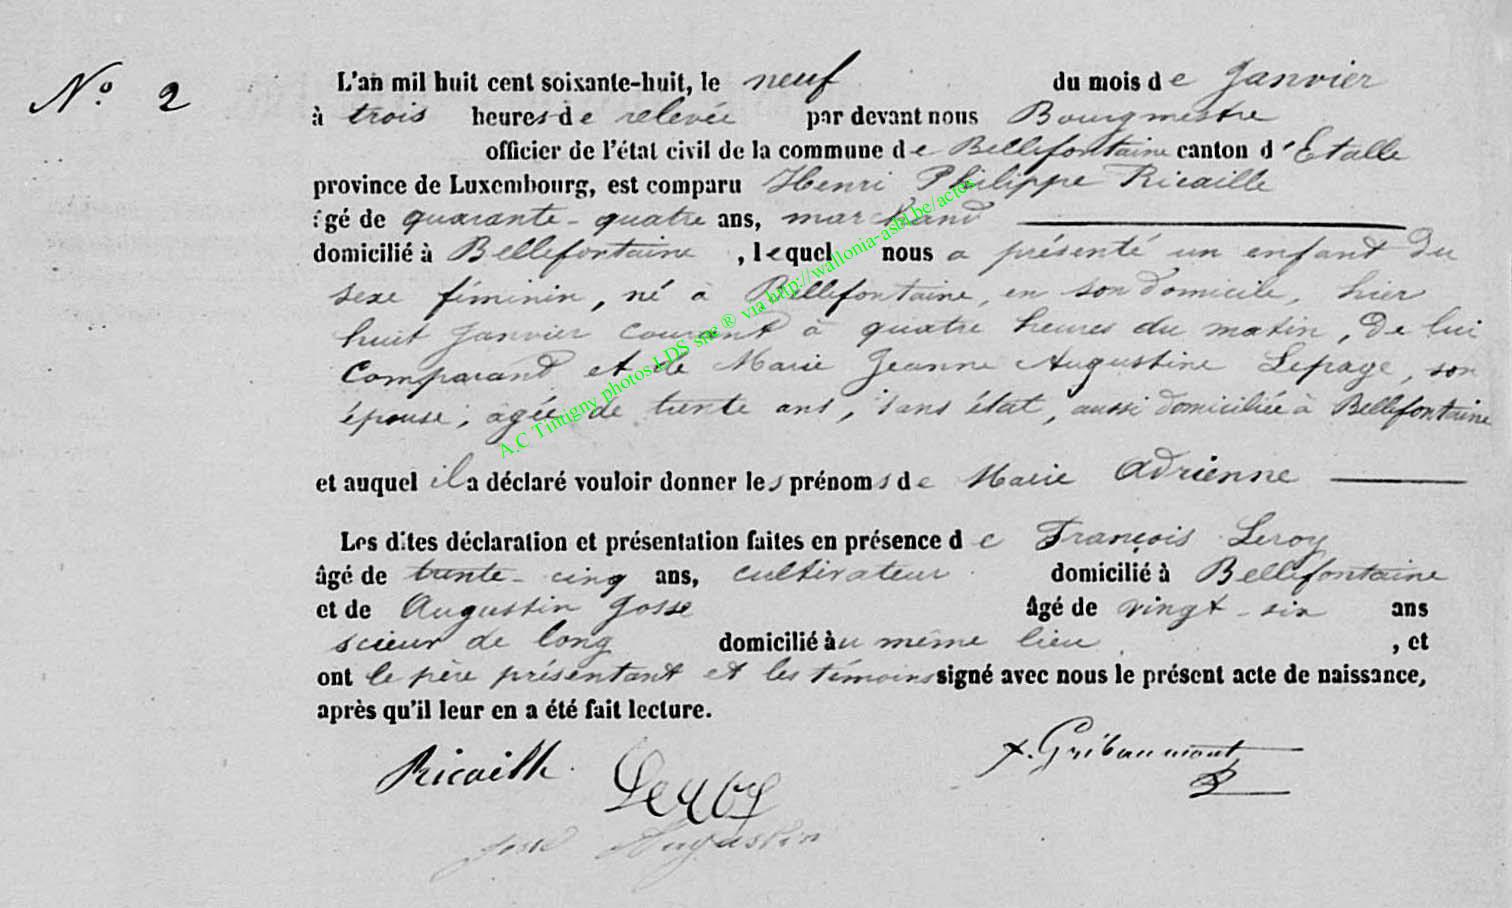 N° 2
L'an mil huit cent soixante-huit, le neuf du mois de Janvier
à trois heures de relevée par devant nous Bourgmestre
officier de l'état civil de la commune de Bellefontaine canton d'Etalle
province de Luxembourg, est comparu Henri Philippe Ricaille
âgé de quarante-quatre ans, marchand
domicilié à Bellefontaine, lequel nous a présenté un enfant du
sexe féminin, né à Bellefontaine, en son domicile, hier
huit Janvier courant à quatre heures du matin, de lui
comparand et de Marie Jeanne Augustine Lepage, son
épouse, agée de trente ans, sans état, aussi domiciliée à Bellefontaine
et auquel il a déclaré vouloir donner les prénoms de Marie Adrienne
Les dites déclaration et présentation faites en présence de François Leroy
âgé de trente-cinq ans, cultivateur domicilié à Bellefontaine
et de Augustin Gosse âgé de vingt-six ans
scieur de long domicilié au même lieu, et
ont le père présentant et les témoins signé avec nous le présent acte de naissance,
après qu'il leur en a été fait lecture.
Ricaille Leroy Gribaumont
Augustin
A.C Tintigny photos LDS snc ® via http://wallonia-asbl.be/actes